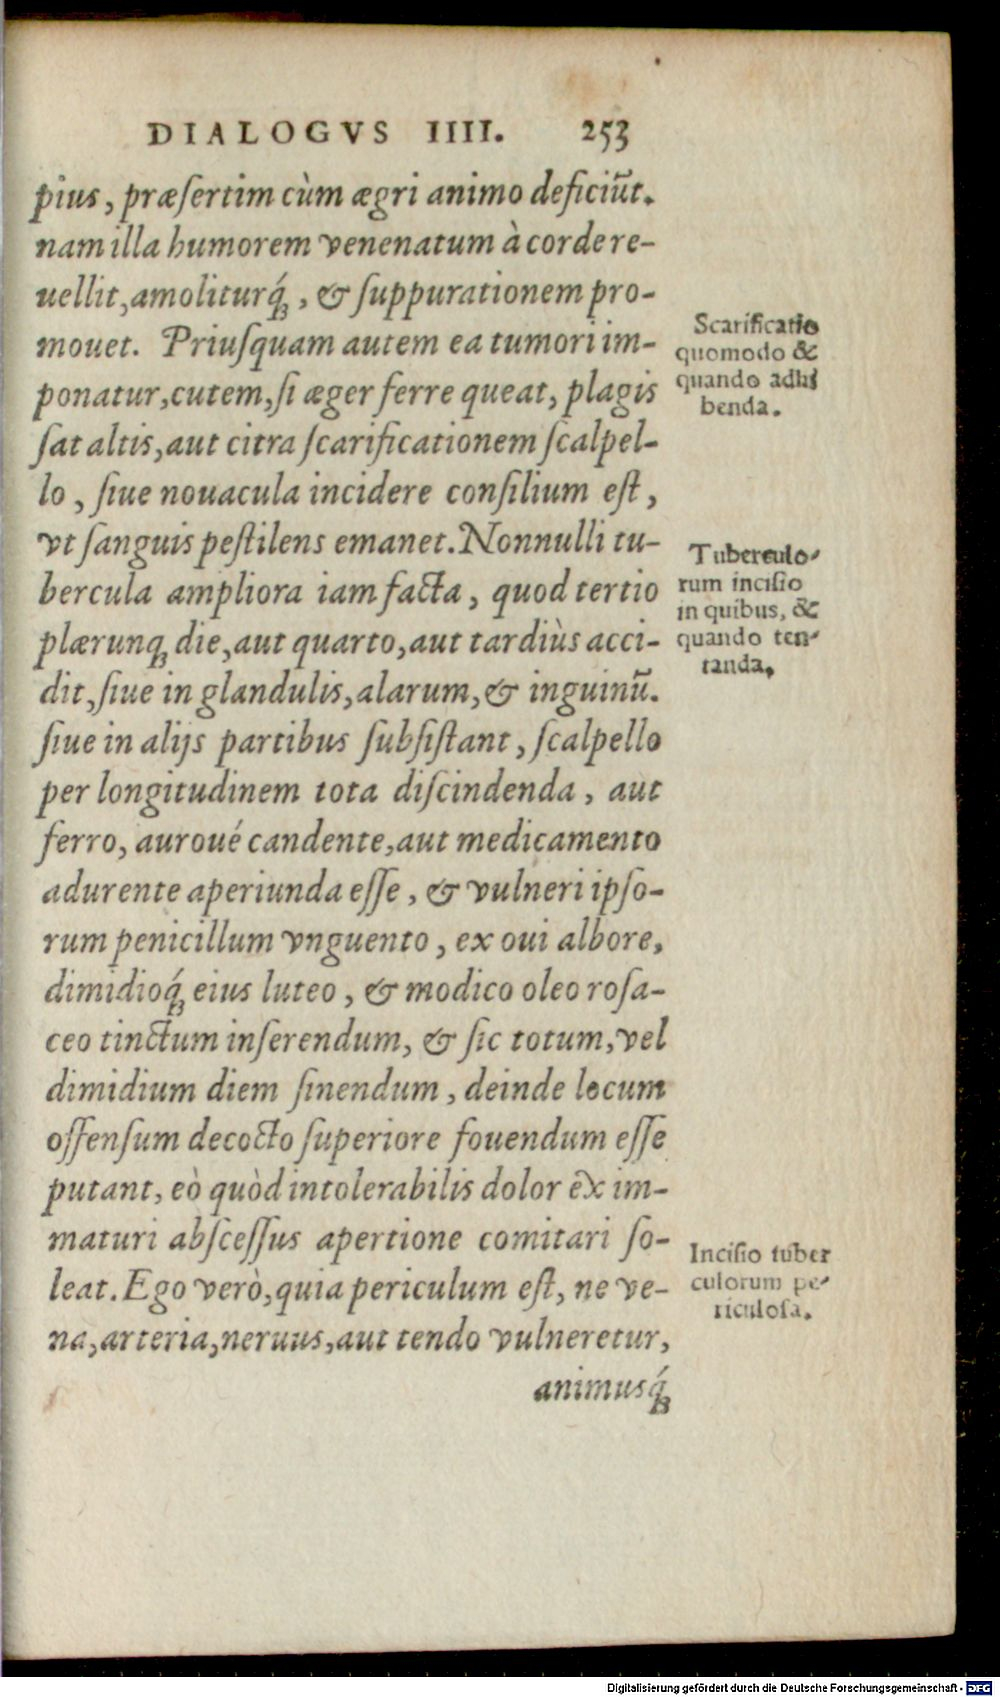 DIALOGVS IIII. 253
pius, præſertim cùm ægri animo deficiūt.
nam illa humorem venenatum à corde re-
uellit, amoliturq́ꝫ, & ſuppurationem pro-
mouet. Priuſquam autem ea tumori im-
ponatur, cutem, ſi æger ferre queat, plagis
ſat altis, aut citra ſcarificationem ſcalpel-
lo, ſiue nouacula incidere conſilium eſt,
vt ſanguis peſtilens emanet. Nonnulli tu-
bercula ampliora iam facta, quod tertio
plærunqꝫ die, aut quarto, aut tardiùs acci-
dit, ſiue in glandulis, alarum, & inguinū.
ſiue in alijs partibus ſubſiſtant, ſcalpello
per longitudinem tota diſcindenda, aut
ferro, auroué candente, aut medicamento
adurente aperiunda eſſe, & vulneri ipſo-
rum penicillum vnguento, ex oui albore,
dimidioq́ꝫ eius luteo, & modico oleo roſa-
ceo tinctum inſerendum, & ſic totum, vel
dimidium diem ſinendum, deinde locum
offenſum decocto ſuperiore fouendum eſſe
putant, eò quòd intolerabilis dolor ex im-
maturi abſceſſus apertione comitari ſo-
leat. Ego verò, quia periculum eſt, ne ve-
na, arteria, neruus, aut tendo vulneretur,
animusq́ꝫ
Scarificatio
quomodo &
quando adhi
benda.
Tuberculo-
rum inciſio
in quibus, &
quando ten-
tanda.
Inciſio tuber
culorum pe-
riculoſa.
Digitalisierung gefördert durch die Deutsche Forschungsgemeinschaft - DFG